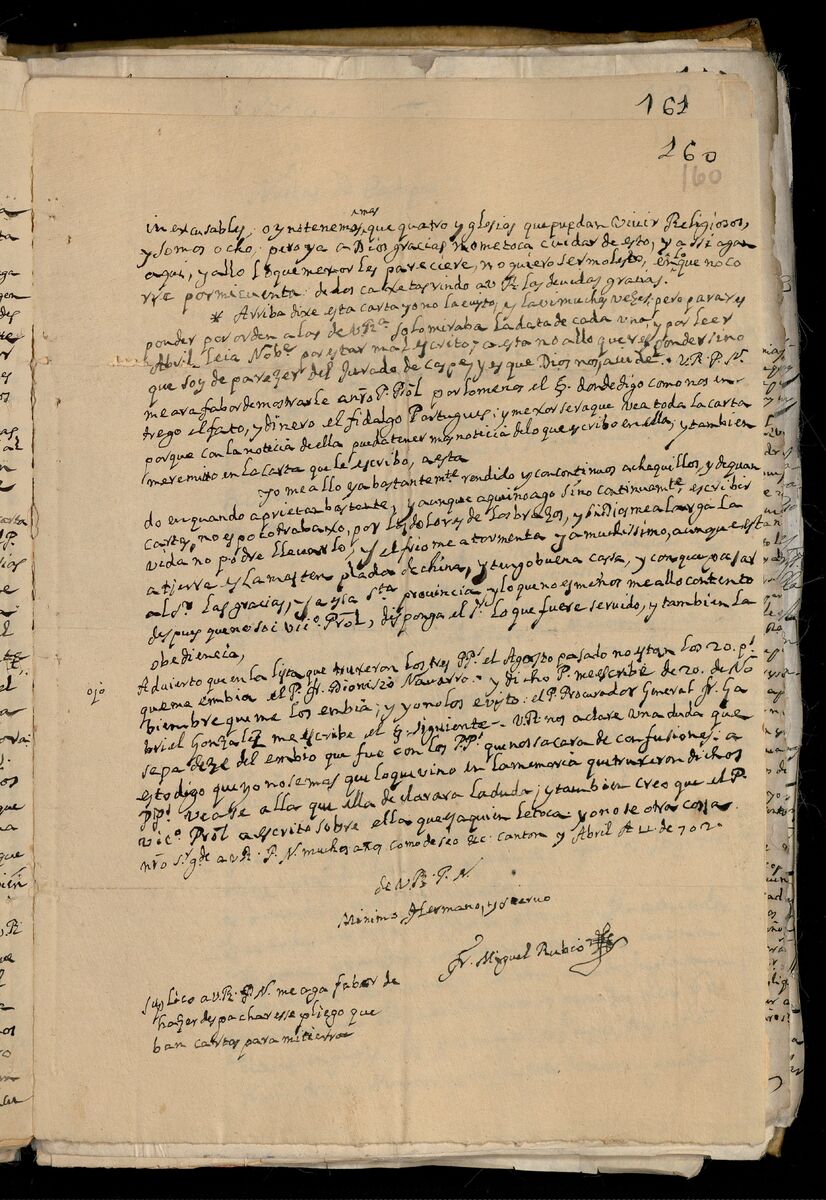 161
160
160
mas
inexcusables, oy no tenemos, que quatro yglesias que puedan vivir Religiosos,
y somos ocho; pero ya a Dios gracias no me toca cuidar de esto, y assi agan
aqui, y alla lo que mexor les pareciere, no quiero ser molesto, en lo que no co
rre por mi cuenta: de los caxetas rindo a V R las devidas gracias.
* Arriba dixe esta carta yo no la e visto, y la vi muchas vezes, pero para res
ponder por orden a las de V Ra solo miraba la data de cada una, y por leer
Abril leia Nobe por estar mal escrito; a esta no allo que responder sino
que soy de parezer del Jurado de Caspe, y es que Dios nos ajude. V. R. P. N.
me ara fabor de mostrarle a nro P. Prol por lo menos el § donde digo como nos en-
trego el fato, y dinero el fidalgo Portugues; y mexor sera que vea toda la carta
porque con la noticia de ella pueda tener mas noticia de lo que escribo en ella; y tambien
me remito en la carta que le escribo, a esta
Yo me allo ya bastantemte rendido y con continuos achaquillos, y de quan
do en quando aprietan bastante, y aunque aqui no ago sino continuamte escribir
cartas, no es poco trabaxo, por los dolores de los brazos, y si Dios me alarga la
vida no podre llevarlo, y el frio me atormenta ya muchissimo, aunque esta
tierra es la mas templada de china, y tengo buena casa, y con que pasar
al Sr. las gracias, y a esa Sta provincia y lo que no es menos me allo contento
despues que no soi Vico. Prol, disponga el Sr. lo que fuere servido, y tambien la
obediencia,
ojo
Advierto que en la lista que truxeron los tres PPs. el Agosto pasado no estan los 20. ps.
que me embia el P. Fr. Dionisio Navarro. y dicho P. me escribe de 20. de No
biembre que me los embia; y yo no los e visto: el P. Procurador General Fr. Ga
briel Gonzalez me escribe el § siguiente. V R nos aclare una duda que
se padeze del embio que fue con los PPs. que nos sacara de confusiones: a
esto digo que yo no se mas que lo que vino en la memoria que truxeron dichos
PPs. vease alla que ella declarara la duda; y tambien creo que el P.
Vico. Prol a escrito sobre ella que es a quien le toca: yo no se otra cosa.
nro Sr. gde a V R. P. N. muchos años como deseo &c. Canton y Abril A 4 de 702.
de V R. P. N.
Minimo Hermano, y siervo
Fr. Miguel Rubio
Suplico a V. R. P. N. me aga fabor de
hazer despachar esse pliego que
ban cartas para mi tierra